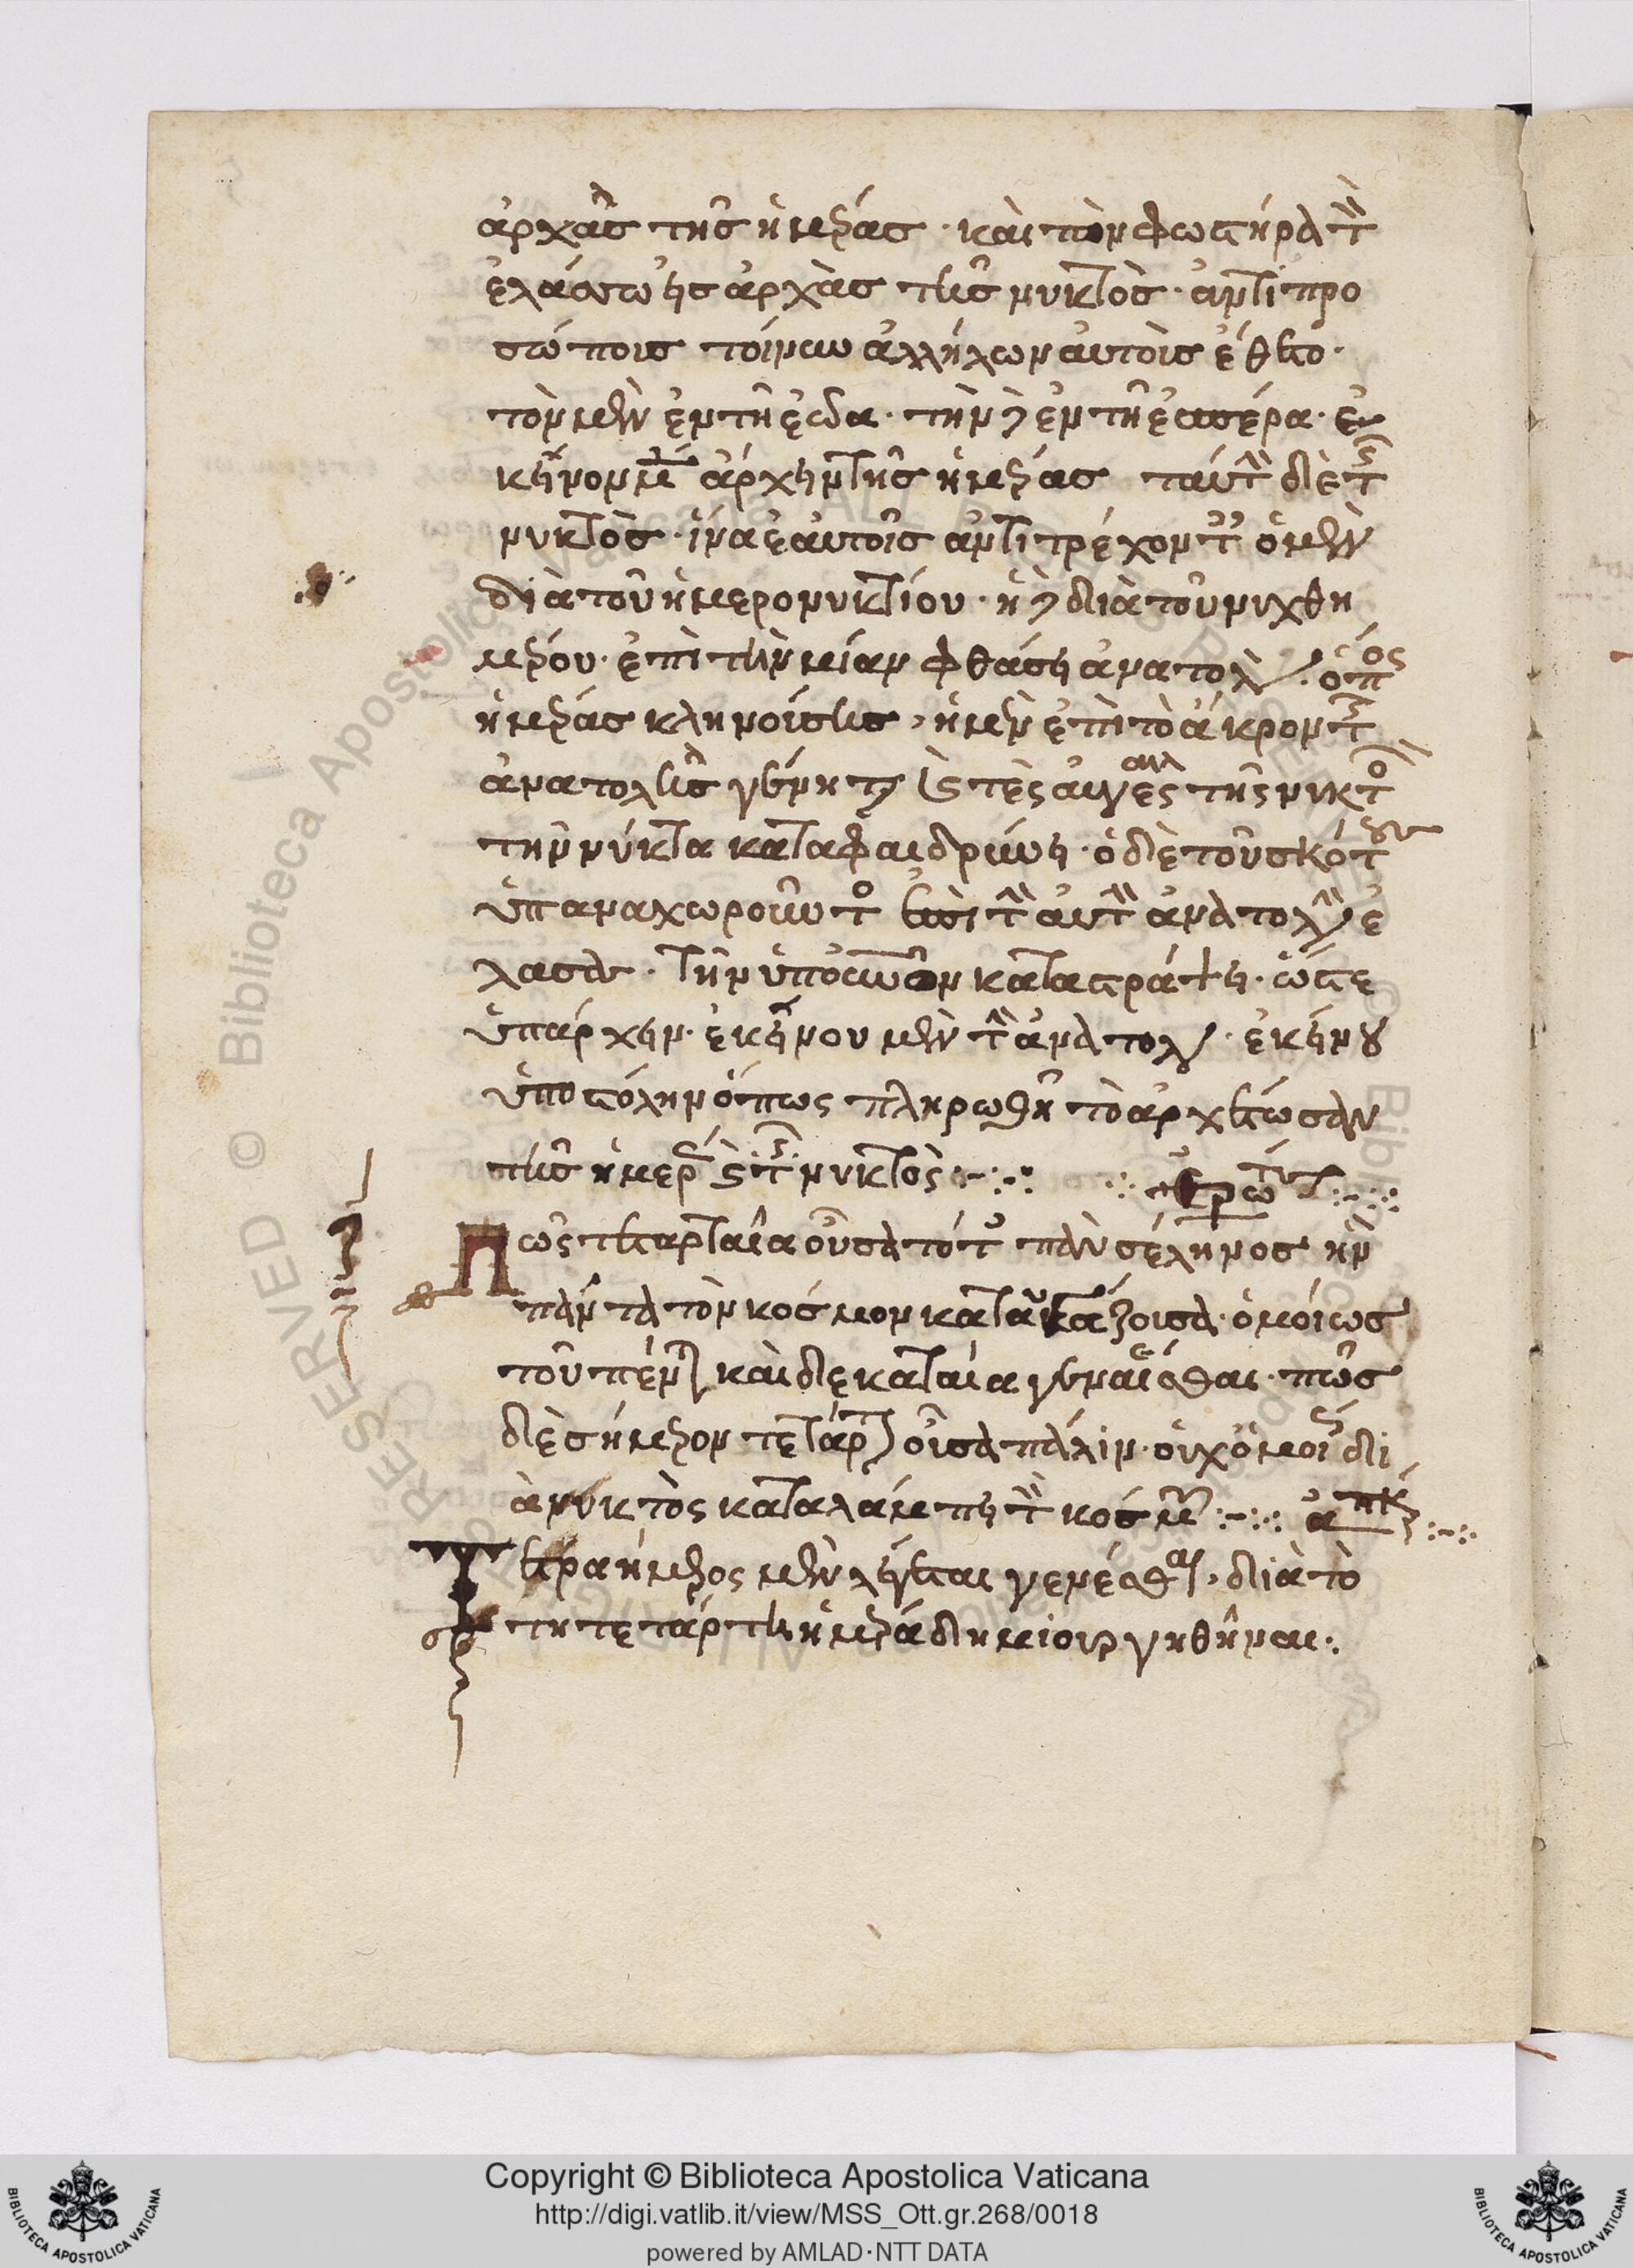 ἀρχὰς τῆς ἡμέρας · καὶ τὸν φωστήρα τὸν
ἐλάσσω εἰς ἀρχὰς τῆς νυκτὸς · ἀντιπρο
σώποις τοίνυν ἀλλήλων αὐτοῖς ἔθετο ·
τὸν μὲν ἐν τῇ ἕω · τὴν δὲ ἐν τῇ ἑσπέρα ·
κεῖνον μὲν ἄρχειν τῆς ἡμέρας ταύτην δὲ τῆς
νυκτὸς · ἵνα ἑαυτοῖς ἀντιτρέχοντες ὁ μὲν
διὰ τοῦ ἡμερονυκτίου · ἡ δὲ διὰ τοῦ νυχθη
μέρου · ἐπὶ τὴν μίαν φθάσει ἀνατολήν · ὅπως
ἡμέρας κλινούσης, ἡ μὲν ἐπὶ τὸ ἄκρον τῆς
ἀνατολῆς γένηται καὶ τὲς αὐγὲς τῆς νυκτὸς
τὴν νύκτα καταφαιδρύνει · ὁ δὲ τοῦ σκότους
ὑπαναχωροῦντος ἐπὶ τὴν αὐτὴν ἀνατολὴν ἐ
λάσας · τὴν ὑπ' οὐρανὸν καταστράψει · ὥστε
ὑπάρχειν · ἐκείνου μὲν τὴν ἀνατολήν · ἐκείνου
ὑποστόλην ὅπως πληρωθῆ τὸ ἀρχέτωσαν
τῆς ἡμέρας καὶ τῆς νυκτὸς :-:· ἐρώτησις :-:·
Πῶς τεταρταῖα οὖσα τότε πανσέληνος ἦν
πάντα τὸν κόσμον καταυγάζουσα · ὁμοίως
τοῦ πέμπτη καὶ δεκαταία γενέσθαι · πῶς
δὲ σήμερον τετάρτη οὖσα πάλιν · οὐχ ὁμοίως δι
ὰ νυκτὸς καταλάμπει τὸν κόσμον :-:· ἀπόκρισις :-:·
Τετραήμερος μὲν λέγεται γενέσθαι, διὰ τὸ
τῆ τετάρτη ἡμέρα δημιουργηθῆναι :·
Copyright © Biblioteca Apostolica Vaticana
http://digi.vatlib.it/view/MSS_Ott.gr.268/0018
powered by AMLAD·NTT DATA
BIBLIOTECA APOSTOLICA VATICANA
BIBLIOTECA APOSTOLICA VATICANA